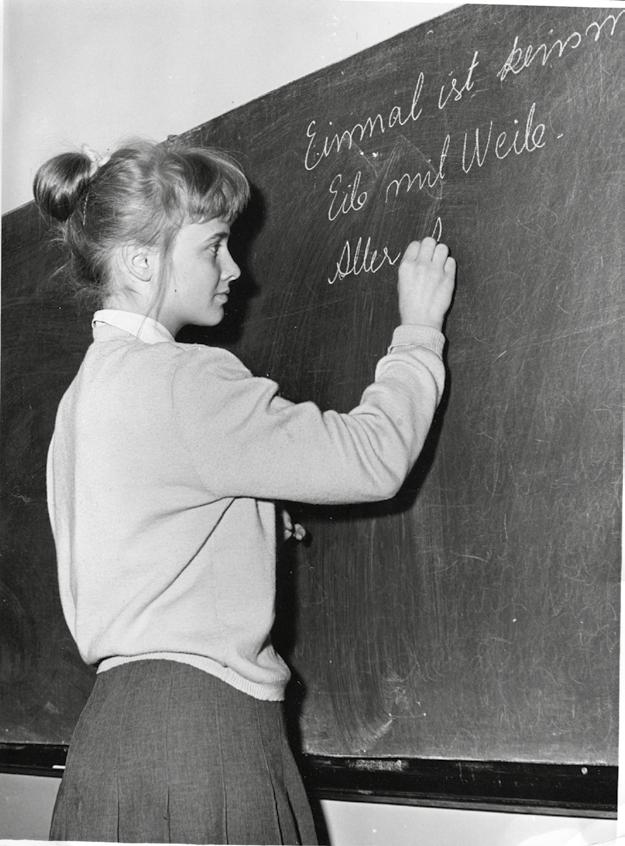 Einmal ist keinm
Eile mit Weile.
Aller